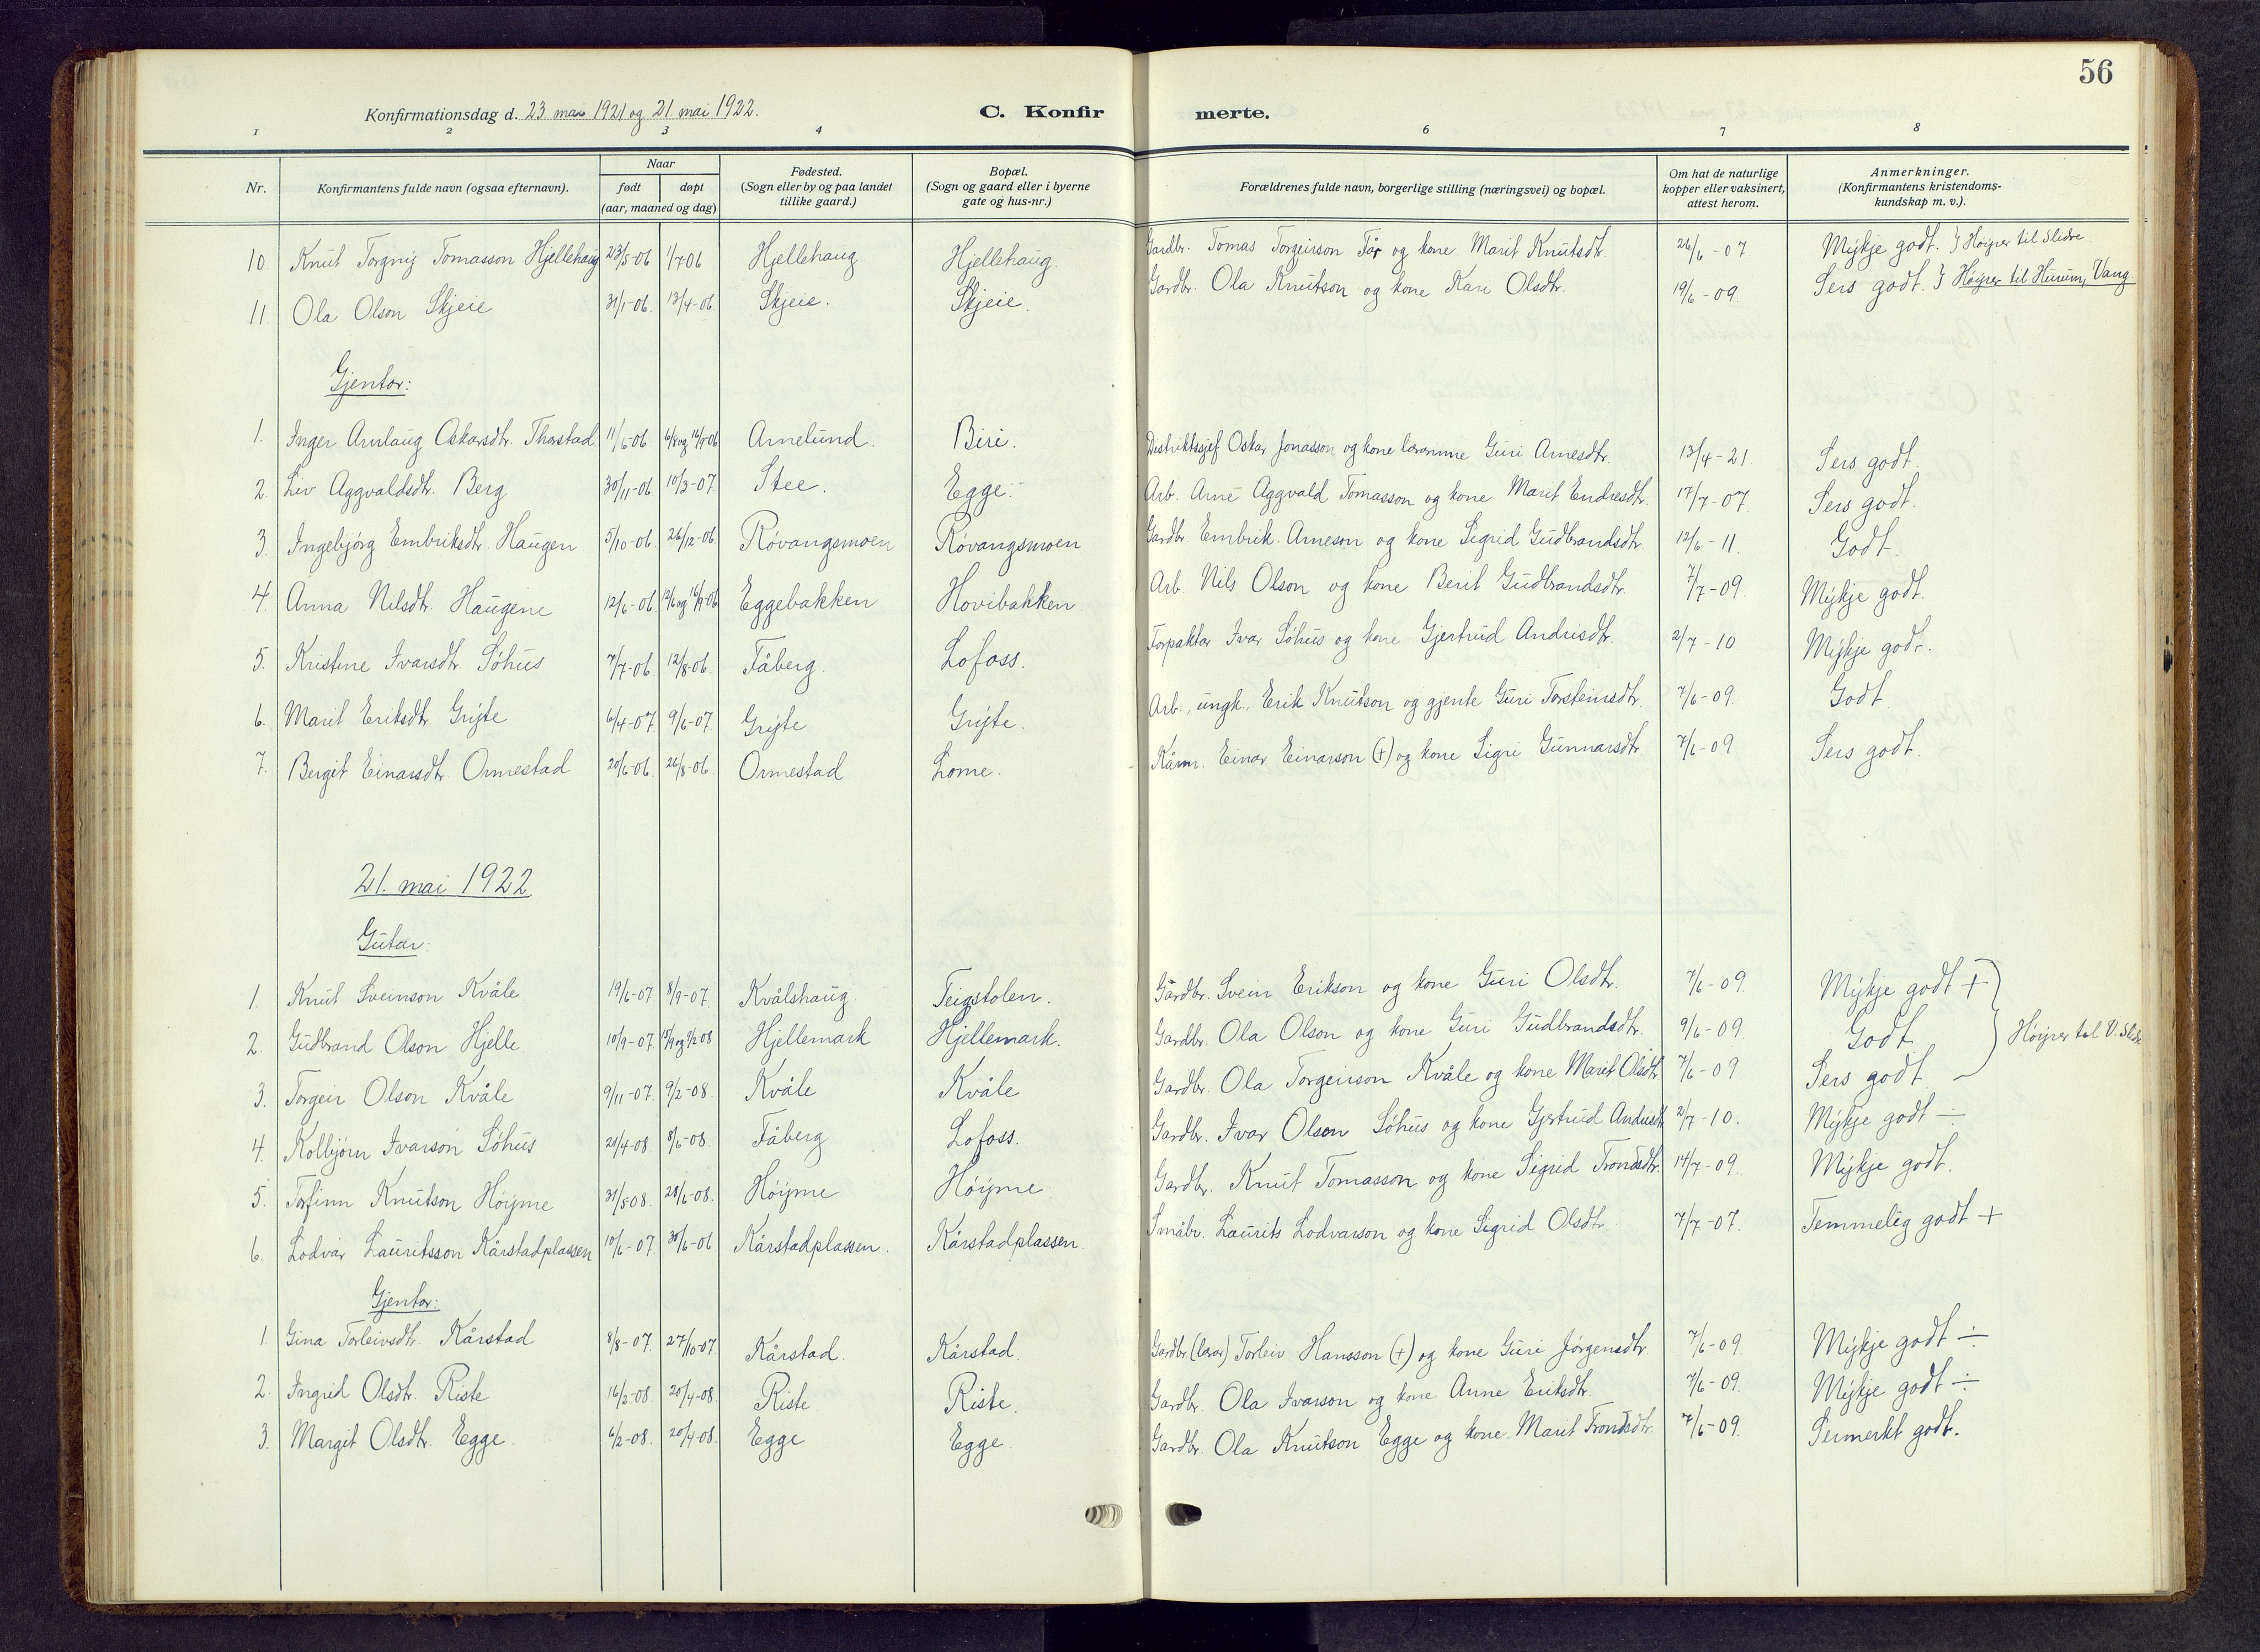 56
Konfirmationsdag d. 23. mai 1921 og 21 mai 1922. C. Konfirmerte.
1 2 3 4 6 7 8
Nr. Konfirmantens fulde navn (ogsaa efternavn). Naar født døpt (aar, maaned og dag) Fødested. (Sogn eller by og paa landet tillike gaard.) Bopæl. (Sogn og gaard eller i byerne gate og hus-nr.) Forældrenes fulde navn, borgerlige stilling (næringsvei) og bopæl. Om hat de naturlige kopper eller vaksinert, attest herom. Anmerkninger. (Konfirmantens kristendoms-kundskap m. v.).
10 Knut Torgny Tomasson Hjellehaug 23/5-06 1/7-06 Hjellehaug Hjellehaug. Gardbr. Tomas Torgeirson Før og kone Marit Knutsdtr. 26/6-07. Mykje godt. } Høyrer til Slidre
11. Ola Olson Skjeie 31/1-06. 13/4-06. Skjeie. Skjeie. Gardbr. Ola Knutson og kone Kari Olsdtr. 19/6-09. Sers godt. } Høyrer til Hurum, Vang.
Gjentor:
1. Inger Arnlaug Oskarsdtr. Thorstad 11/6-06 6/8 og 16/9-06 Arnelund. Biri. Distriktssjef Oskar Jonasson og kone lærarinne Guri Arnesdtr. 13/4-21. Sers godt.
2. Liv Aggvaldsdtr. Berg 30/11-06 10/3-07. Stee. Egge. Arb. Arne Aggvald Tomasson og kone Marit Endresdtr. 17/7-07. Sers godt.
3. Ingebjørg Embriksdtr. Haugen 5/10-06. 26/12-06. Røvangsmoen Røvangsmoen Gardbr Embrik Arneson og kone Sigrid Gudbrandsdtr. 12/6-11. Godt
4. Anna Nilsdtr. Haugene 12/6-06. 12/6 og 16/9-06 Eggebakken Hovibakken. Arb. Nils Olson og kone Berit Gudbrandsdtr. 7/7-09. Mykje godt.
5. Kristine Ivarsdtr. Søhus 7/7-06. 12/8-06. Fåberg. Lofoss. Forpaktar Ivar Søhus og kone Gjertrud Andrisdtr. 2/7-10 Mykje godt.
6. Marit Eriksdtr. Gryte 6/4-07. 9/6-07. Gryte Gryte. Arb., ungk. Erik Knutson og gjente Guri Torsteinsdtr. 7/6-09. Godt
7. Bergit Einarsdtr. Ormestad 20/6-06. 26/8-06 Ormestad Lome. Kårm. Einar Einarson (+) og kone Sigri Gunnarsdtr 7/6-09 Sers godt.
21. mai 1922.
Gutar:
1. Knut Sveinson Kvåle 19/6-07 8/9-07. Kvålshaug Teigstolen. Gårdbr. Svein Erikson og kone Guri Olsdtr. 7/6-09. Mykje godt +
2. Gudbrand Olson Hjelle 10/9-07. 15/9 og 9/2 08 Hjellemark Hjellemark. Gardbr. Ola Olson og kone Guri Gudbrandsdtr. 9/6-09. Godt } Høyrer til V. Slidre
3. Torgeir Olson Kvåle 9/11-07. 9/2-08. Kvåle Kvåle Gardbr. Ola Torgeirson Kvåle og kone Marit Olsdtr 7/6-09 Sers godt
4. Kolbjørn Ivarson Søhus 20/4-08 8/6-08. Fåberg Lofoss. Gardbr. Ivar Olson Søhus og kone Gjertrud Andrisdtr 2/7-10. Mykje godt ÷
5. Torfinn Knutson Høyme 31/5-08. 28/6-08. Høyme Høyme Gardbr. Knut Tomasson og kone Sigrid Trondsdtr. 14/7-09. Mykje godt.
6. Lodvar Lauritsson Kårstadplassen 10/6-07. 30/6-06 Kårstadplassen. Kårstadplassen. Småbr. Laurits Lodvarson og kone Sigrid Olsdtr. 7/7-07. Temmelig godt +
Gjentor:
1. Gina Torleivsdtr. Kårstad 8/8-07. 27/10-07. Kårstad. Kårstad. Gardbr. (lærar) Torleiv Hansson (+) og kone Guri Jørgensdtr. 7/6-09. Mykje godt ÷
2. Ingrid Olsdtr. Riste 16/2-08. 20/4-08. Riste Riste. Gardbr. Ola Ivarson og kone Anne Eriksdtr. 7/6-09. Mykje godt ÷
3. Margit Olsdtr. Egge. 6/2-08. 20/4-08. Egge Egge. Gardbr. Ola Knutson Egge og kone Marit Trondsdtr. 7/6-09. Sermerkt godt.